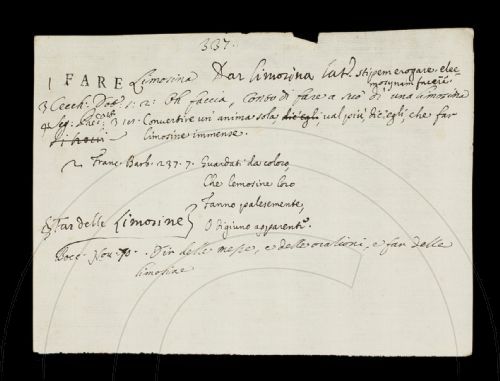 337.
1 FARE Limosina Dar limosina lat. stipem erogare. elemosynam facere.
3 Cecch. Dot. 1. 2. Oh faccia, Conto di fare a suo di una limosina
4 Seg. 3 Convertire un' anima sola, dic'egli, val più, dic'egli, che far
limosine immense.
2 Franc. Barb. 237. 7. Guardati da coloro,
Che lemosine loro
Fanno palesemente,
O digiuno apparenti.
5 Far delle Limosine
Bocc. Nov. Dir delle messe, e delle orationi, e far delle
limosine